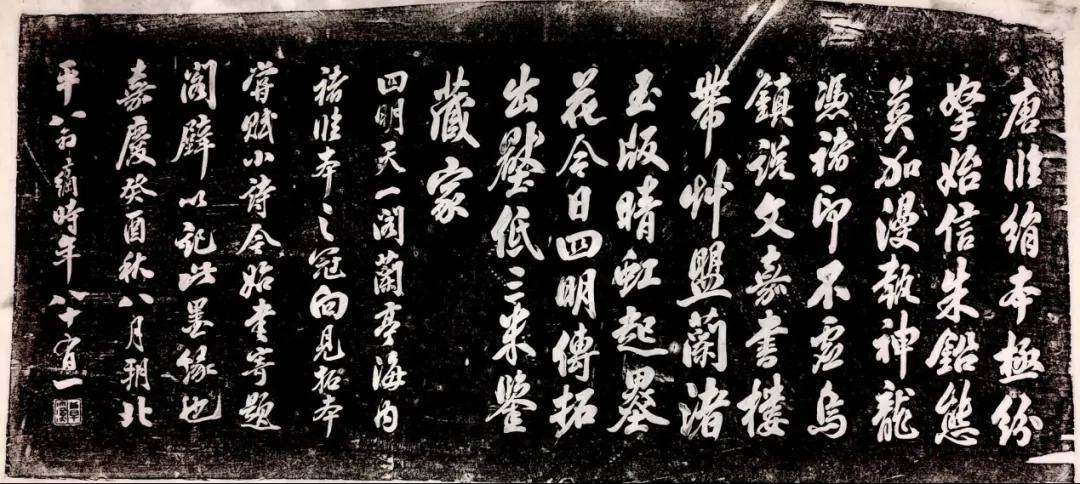 唐臨絹本極紛
挐始信朱鉛態
莫加漫執神龍
憑褚印不虛烏
鎮說文嘉書樓
帶艸盟蘭渚
玉版晴虹起墨
花今日四明傳拓
出壓低三米鑒
藏家
四明天一閣蘭亭海內
褚臨本之冠向見拓本
嘗賦小詩今始書寄題
閣壁以記此墨緣也
嘉慶癸酉秋八月朔北
平翁方綱時年八十有一